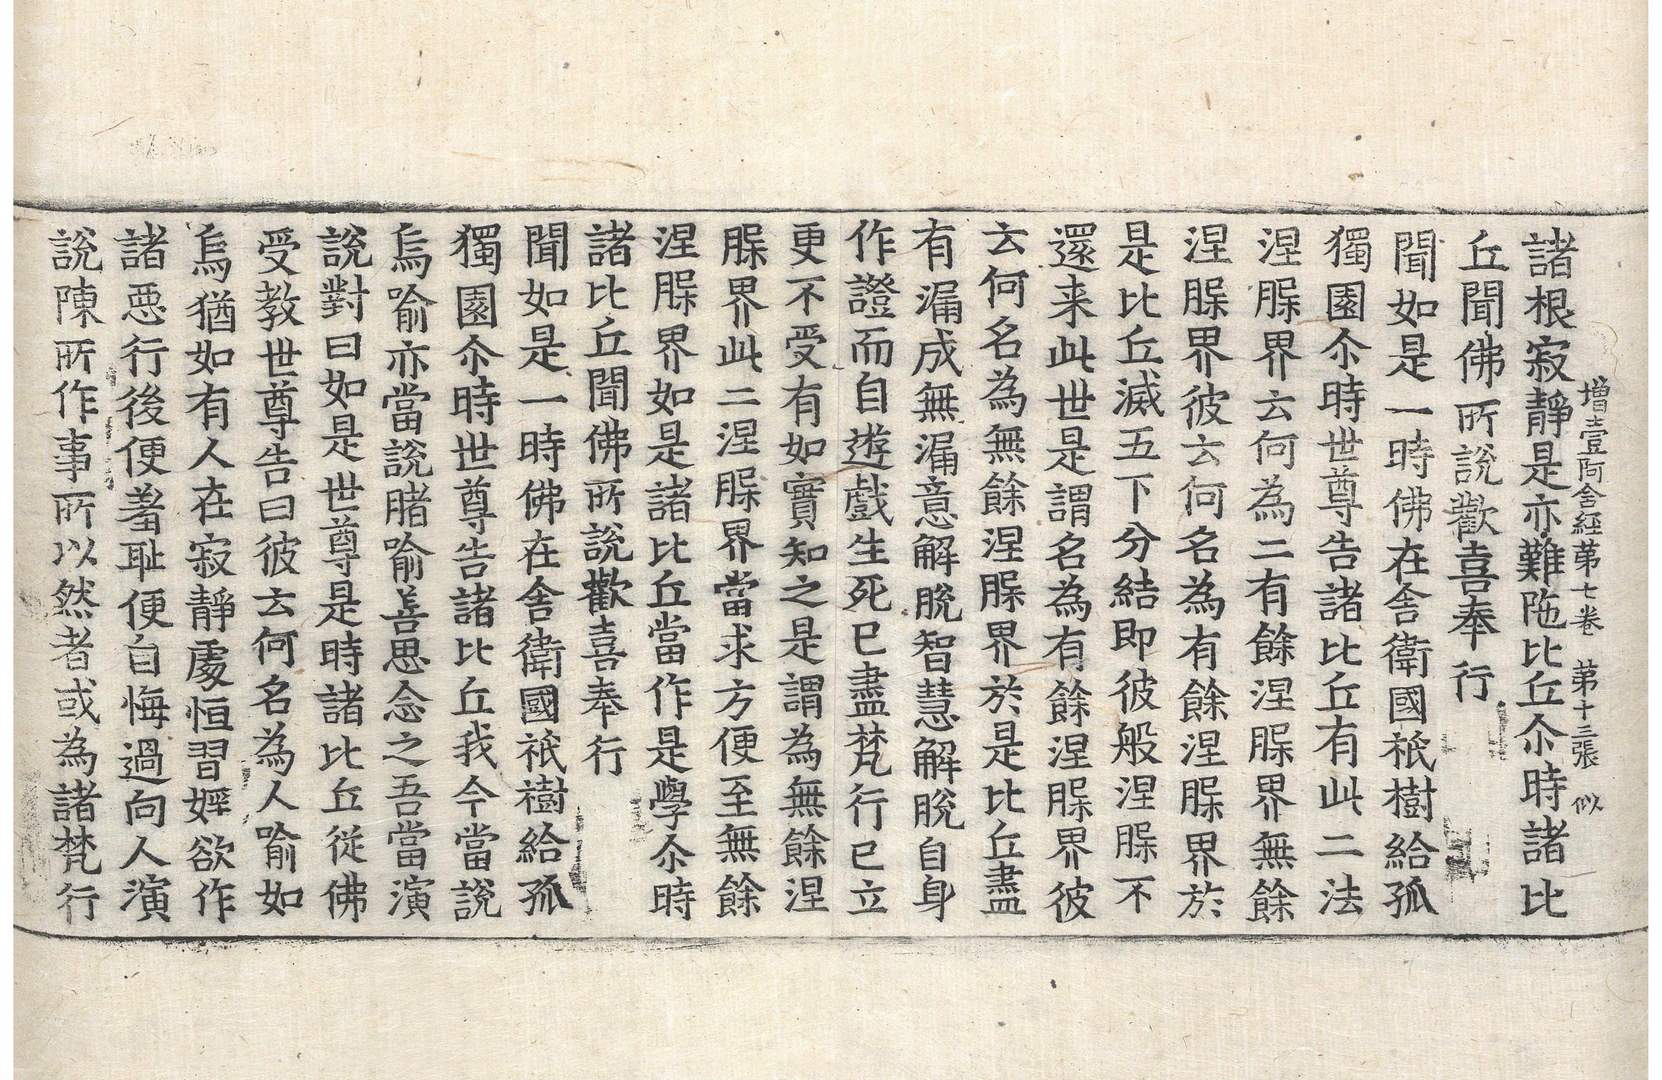 增壹阿含經第七卷　第十三張　似
諸根寂靜是亦難陁比丘尒時諸比
丘聞佛所說歡喜奉行
聞如是一時佛在舍衛國祇樹給孤
獨園尒時世尊告諸比丘有此二法
涅槃界云何為二有餘涅槃界無餘
涅槃界彼云何名為有餘涅槃界於
是比丘滅五下分結即彼般涅槃不
還来此世是謂名為有餘涅槃界彼
云何名為無餘涅槃界於是比丘盡
有漏成無漏意解脫智慧解脫自身
作證而自遊戲生死已盡梵行已立
更不受有如實知之是謂為無餘涅
槃界此二涅槃界當求方便至無餘
涅槃界如是諸比丘當作是學尒時
諸比丘聞佛所說歡喜奉行
聞如是一時佛在舍衛國祇樹給孤
獨園尒時世尊告諸比丘我今當說
烏喻亦當說䐗喻善思念之吾當演
說對曰如是世尊是時諸比丘從佛
受教世尊告曰彼云何名為人喻如
烏猶如有人在寂靜處恒習婬欲作
諸惡行後便羞恥便自悔過向人演
說陳所作事所以然者或為諸梵行